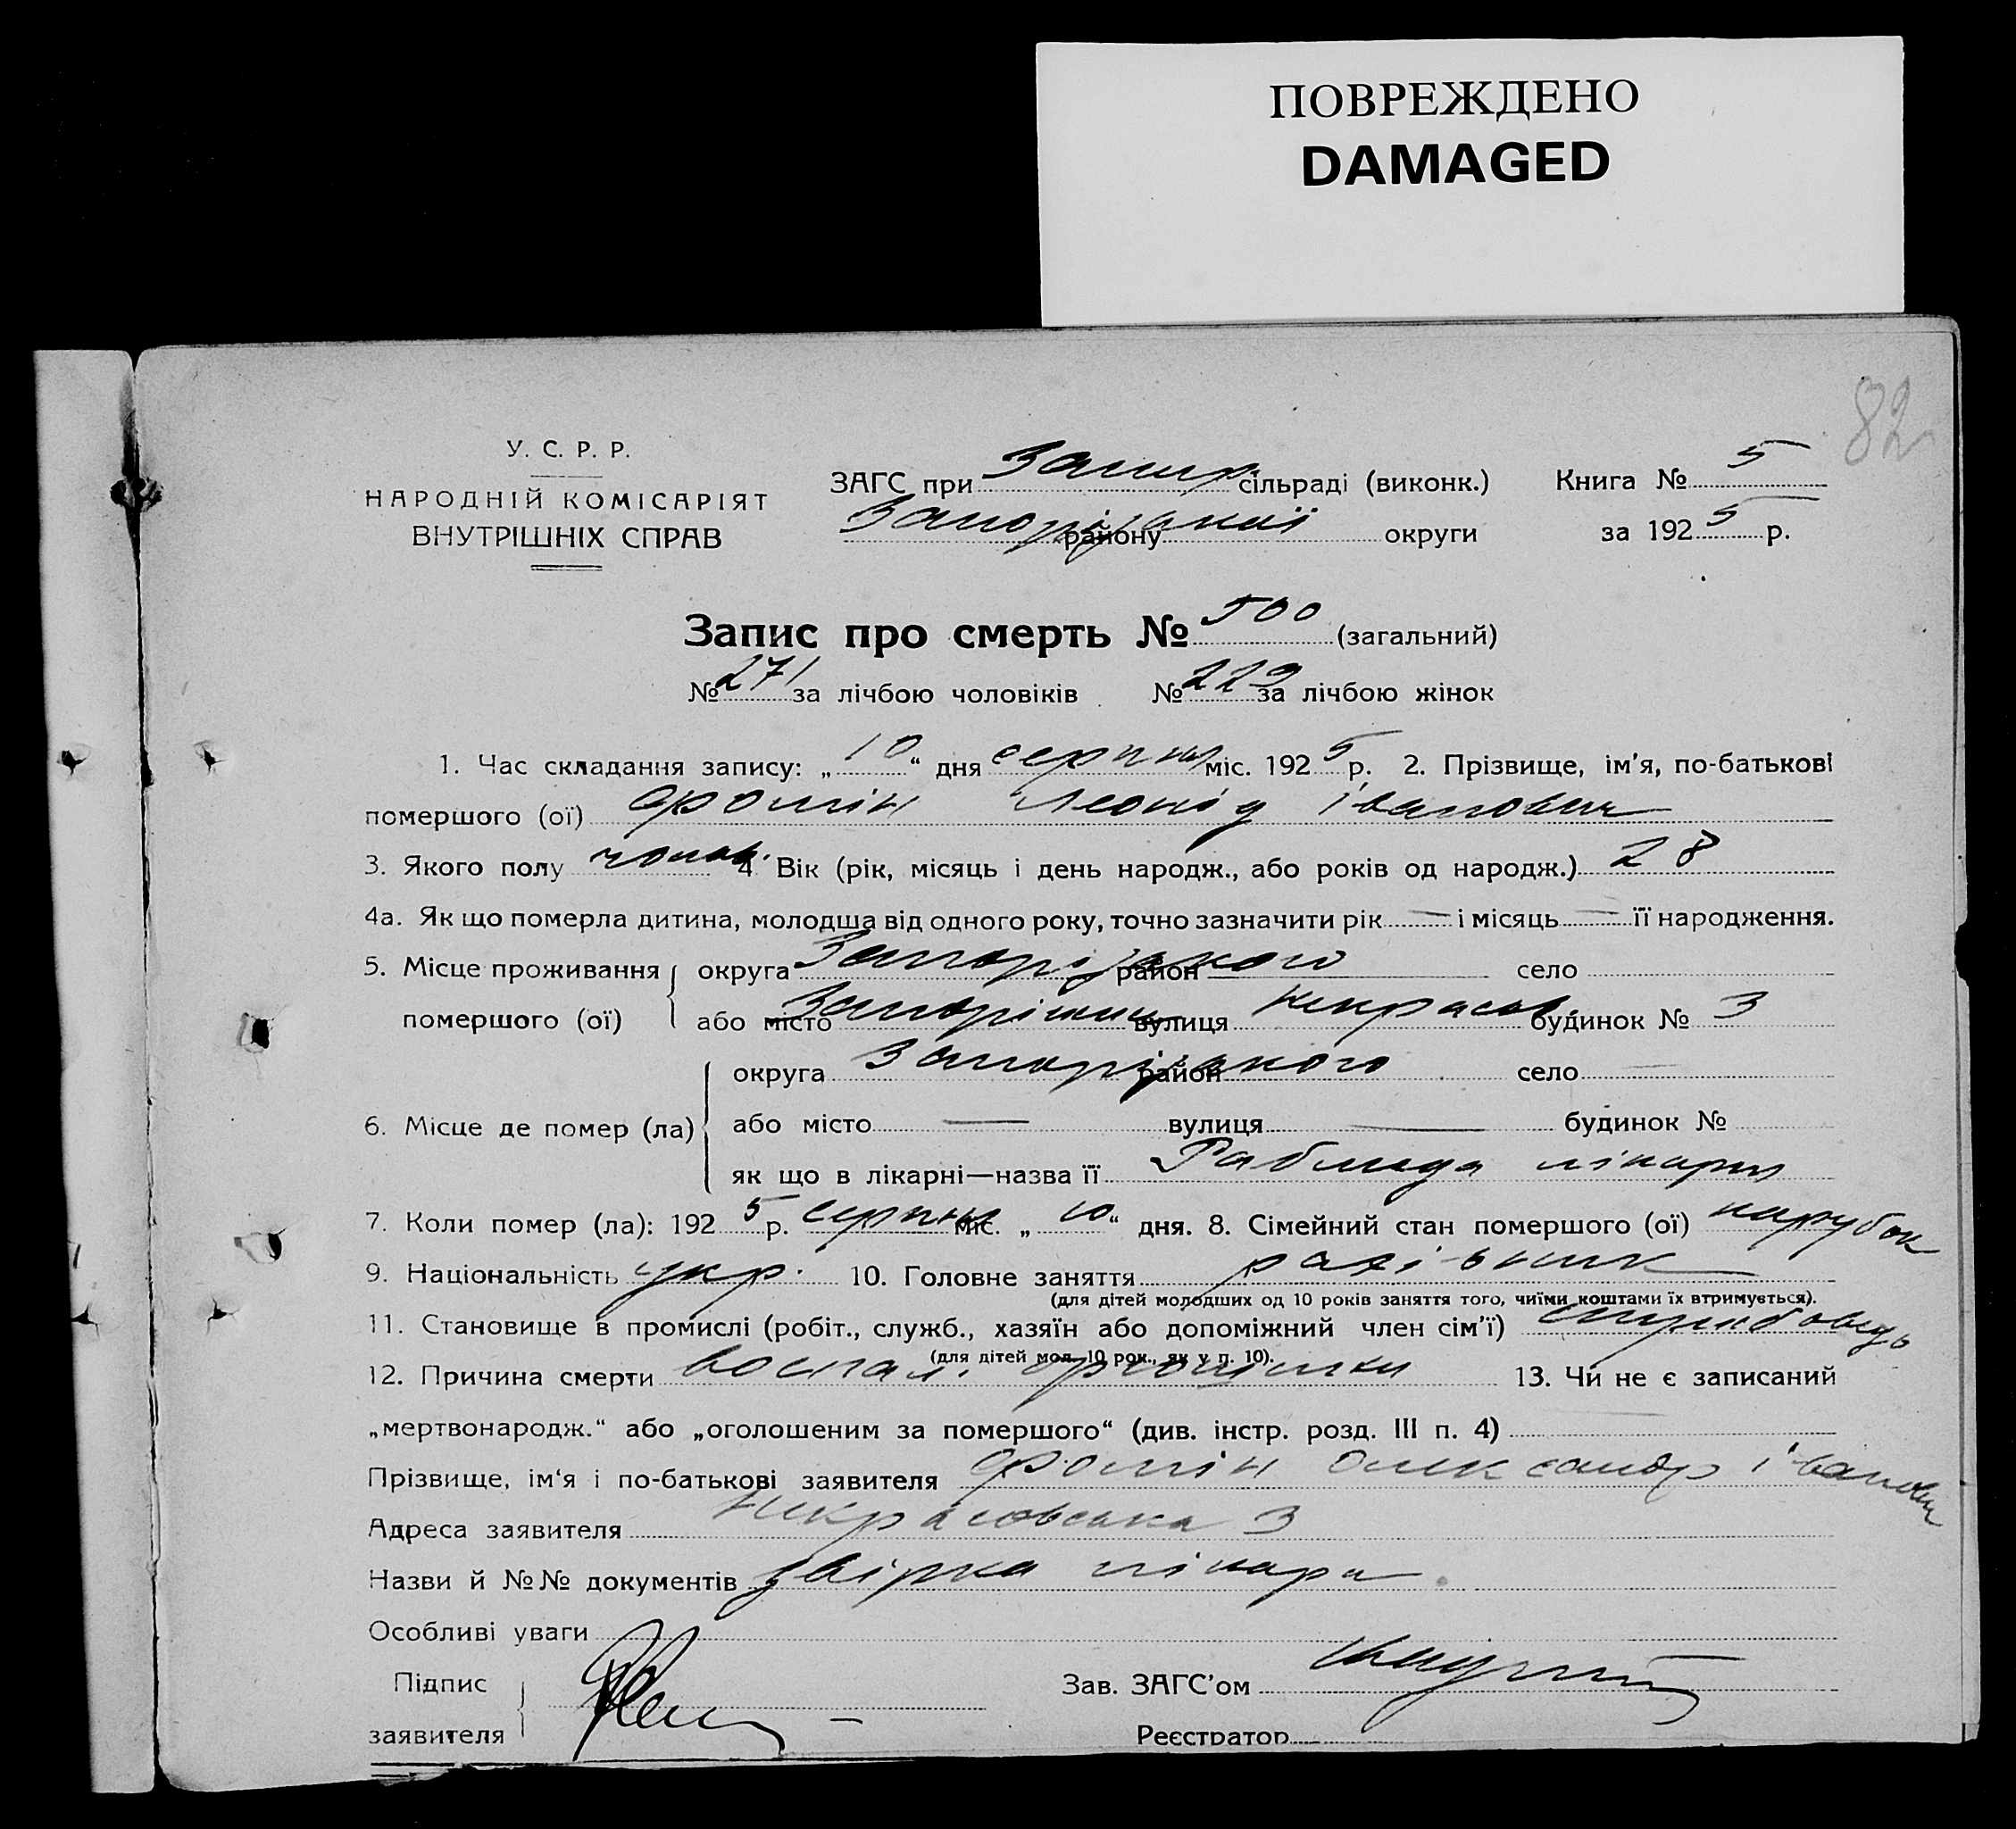 ПОВРЕЖДЕНО
DAMAGED
82
У. С. Р. Р.
НАРОДНІЙ КОМІСАРІЯТ
ВНУТРІШНІХ СПРАВ
ЗАГС при сільраді (виконк.) Книга № 5
Запорізької району округи за 1925 р.
Запис про смерть № 500 (загальний)
№ 271 за лічбою чоловіків № 229 за лічбою жінок
1. Час складання запису: „10“ дня серпня міс. 1925 р. 2. Прізвище, ім’я, по-батькові
помершого (ої) Фомін Леонід Іванович
3. Якого полу чолов. 4. Вік (рік, місяць і день народж., або років од народж.) 28
4а. Як що померла дитина, молодша від одного року, точно зазначити рік — і місяць — її народження.
5. Місце проживання округа Запорізького район село
помершого (ої) або місто Запоріжжя вулиця Некрасов. будинок № 3
округа Запорізького район село —
6. Місце де помер (ла) або місто — вулиця — будинок №
як що в лікарні—назва її лікарня
7. Коли помер (ла): 1925 р. серпня міс. „10“ дня. 8. Сімейний стан помершого (ої) парубок
9. Національність укр. 10. Головне заняття рахівник
(для дітей молодших од 10 років заняття того, чиїми коштами їх втримується).
11. Становище в промислі (робіт., служб., хазяїн або допоміжний член сім’ї) службовець
(для дітей мол. 10 рок., як у п. 10).
12. Причина смерти 13. Чи не є записаний
„мертвонародж.“ або „оголошеним за помершого“ (див. інстр. розд. III п. 4)
Прізвище, ім‘я і по-батькові заявителя Фомін Олександр Іванович
Адреса заявителя Некрасовська 3
Назви й №№ документів довірка лікарн
Особливі уваги
Підпис Зав. ЗАГС’ом
заявителя Реєстратор